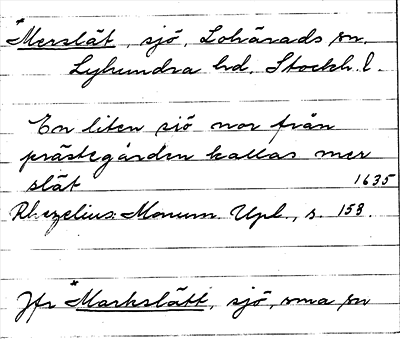 *Merslät, sjö, Lohärads sn.
Lyhundra hd. Stockh. l.
En liten siö nor från
prästegården kallas mer
slät 1635
Rhezelius: Monum. Upl., s. 158.
Jfr *Markslätt, sjö, sma sn